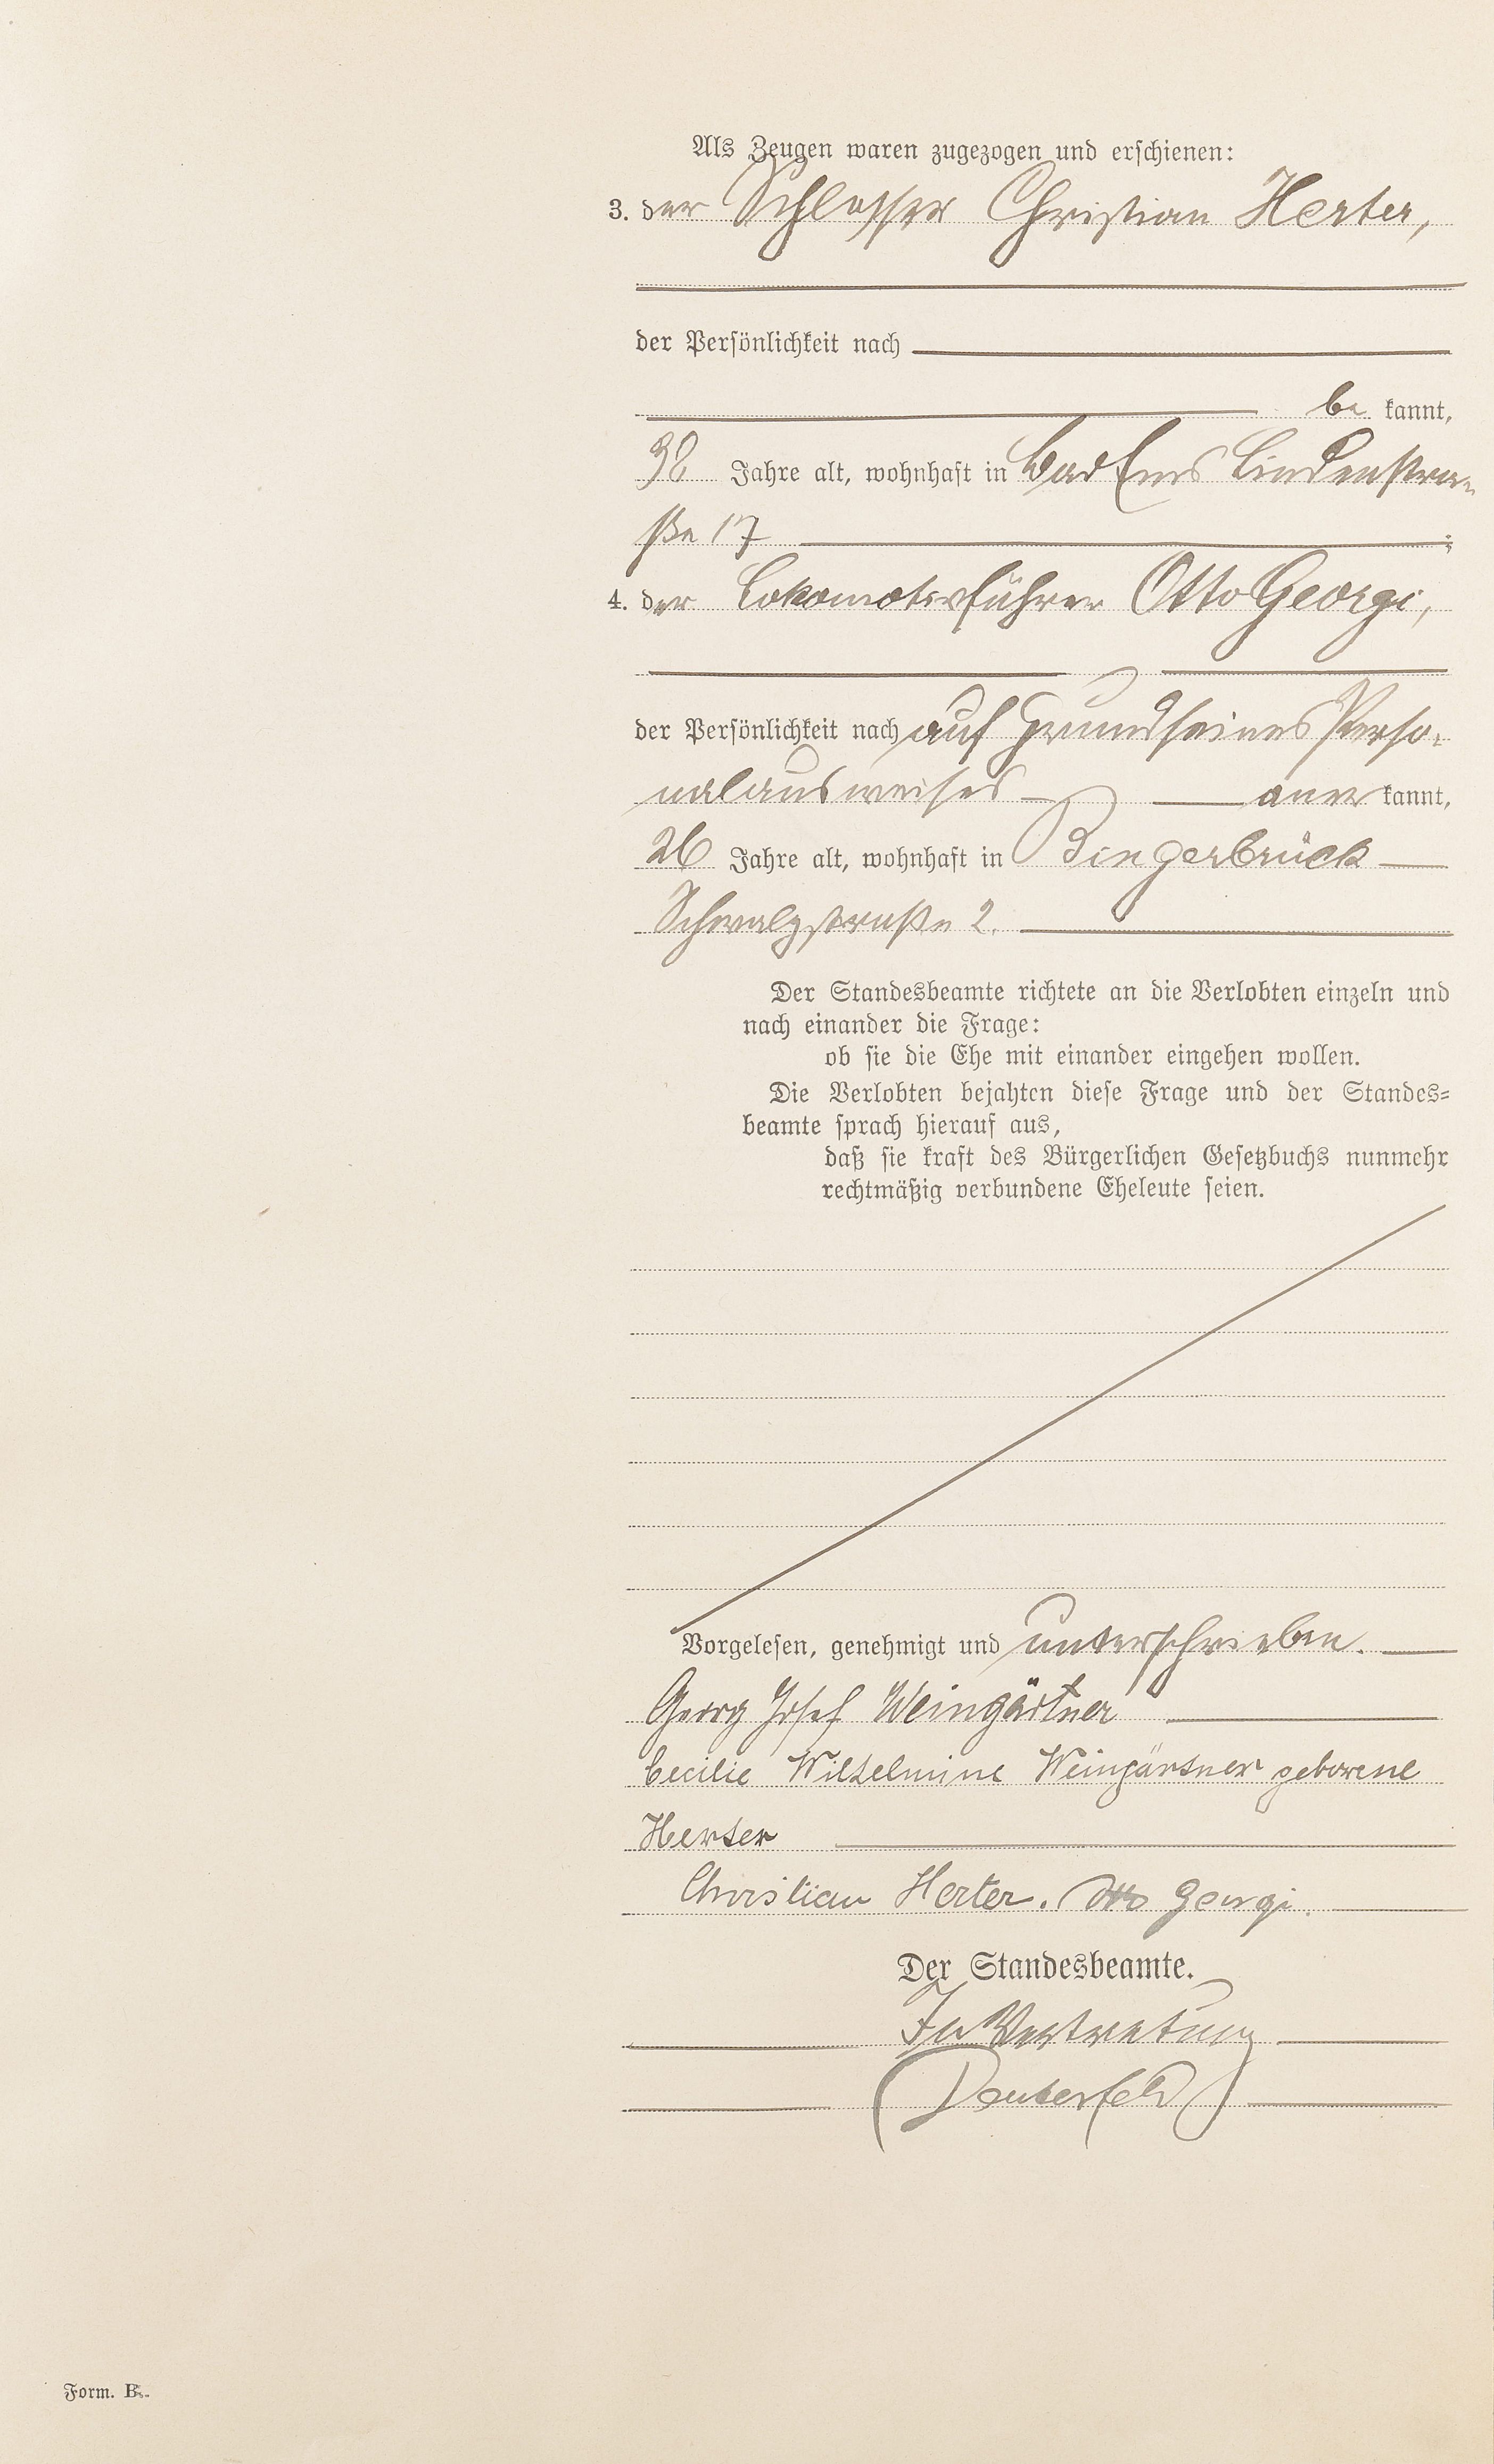 Als Zeugen waren zugezogen und erschienen:
3. der Schlosser Christian Herter,
der Persönlichkeit nach
be kannt,
38 Jahre alt, wohnhaft in Bad Ems Lindenstra-
ße 17 ;
4. der Lokomotivführer Otto Georgi,
der Persönlichkeit nach auf Grund seines Perso-
nalausweises aner kannt,
26 Jahre alt, wohnhaft in Bingerbrück
2.
Der Standesbeamte richtete an die Verlobten einzeln und
nach einander die Frage:
ob sie die Ehe mit einander eingehen wollen.
Die Verlobten bejahten diese Frage und der Standes=
beamte sprach hierauf aus,
daß sie kraft des Bürgerlichen Gesetzbuchs nunmehr
rechtmäßig verbundene Eheleute seien.
Vorgelesen, genehmigt und unterschrieben.
Georg Josef Weingärtner
Cecilie Wilhelmine Weingärtner geborene
Herter
Christian Herter. Otto Georgi.
Der Standesbeamte.
In Vertretung
Form. B.